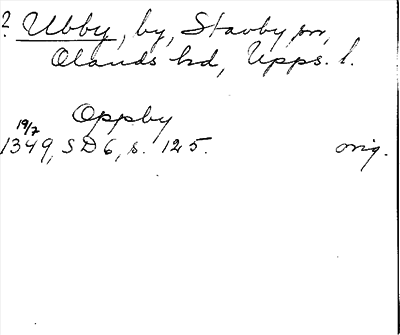 ? Ubby, by, Stavby sn,
Olands hd, Upps. l.
Oppby
19/7
1349, SD 6, s. 125. orig.